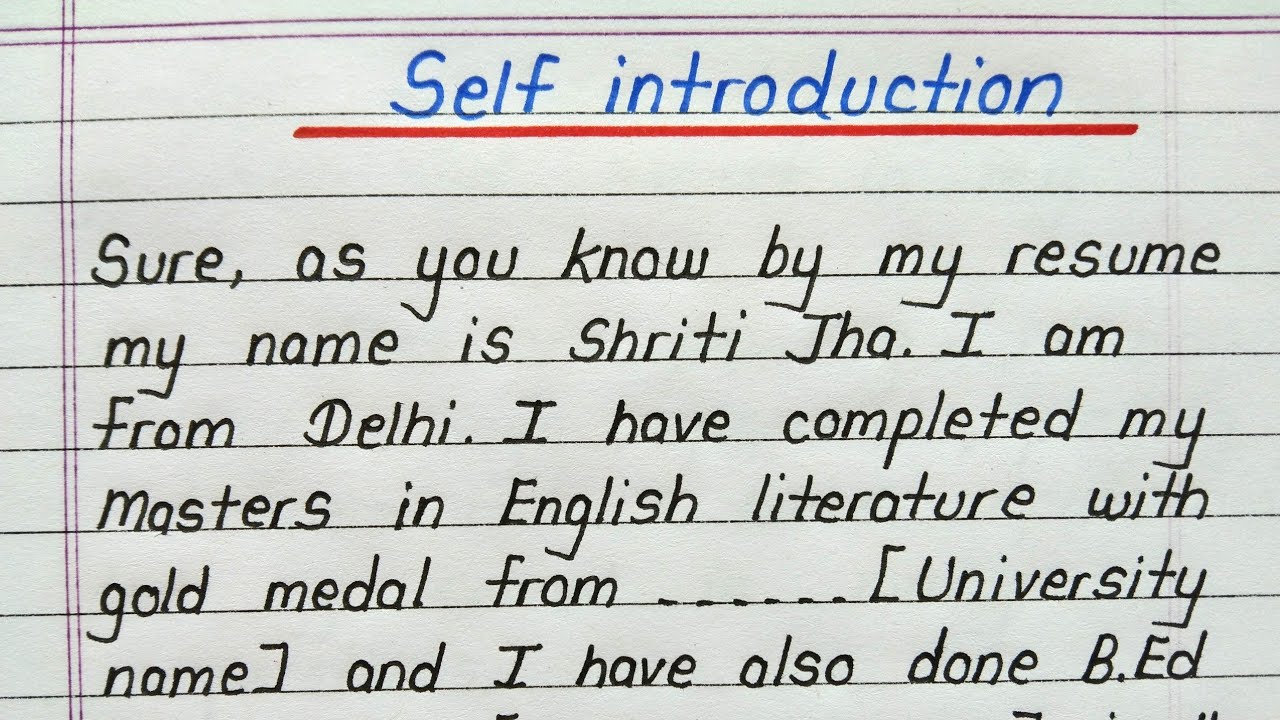 Self introduction
Sure, as you know by my resume
my name is Shriti Jha. I am
from Delhi. I have completed my
masters in English literature with
gold medal from ------ [University
name] and I have also done B.Ed